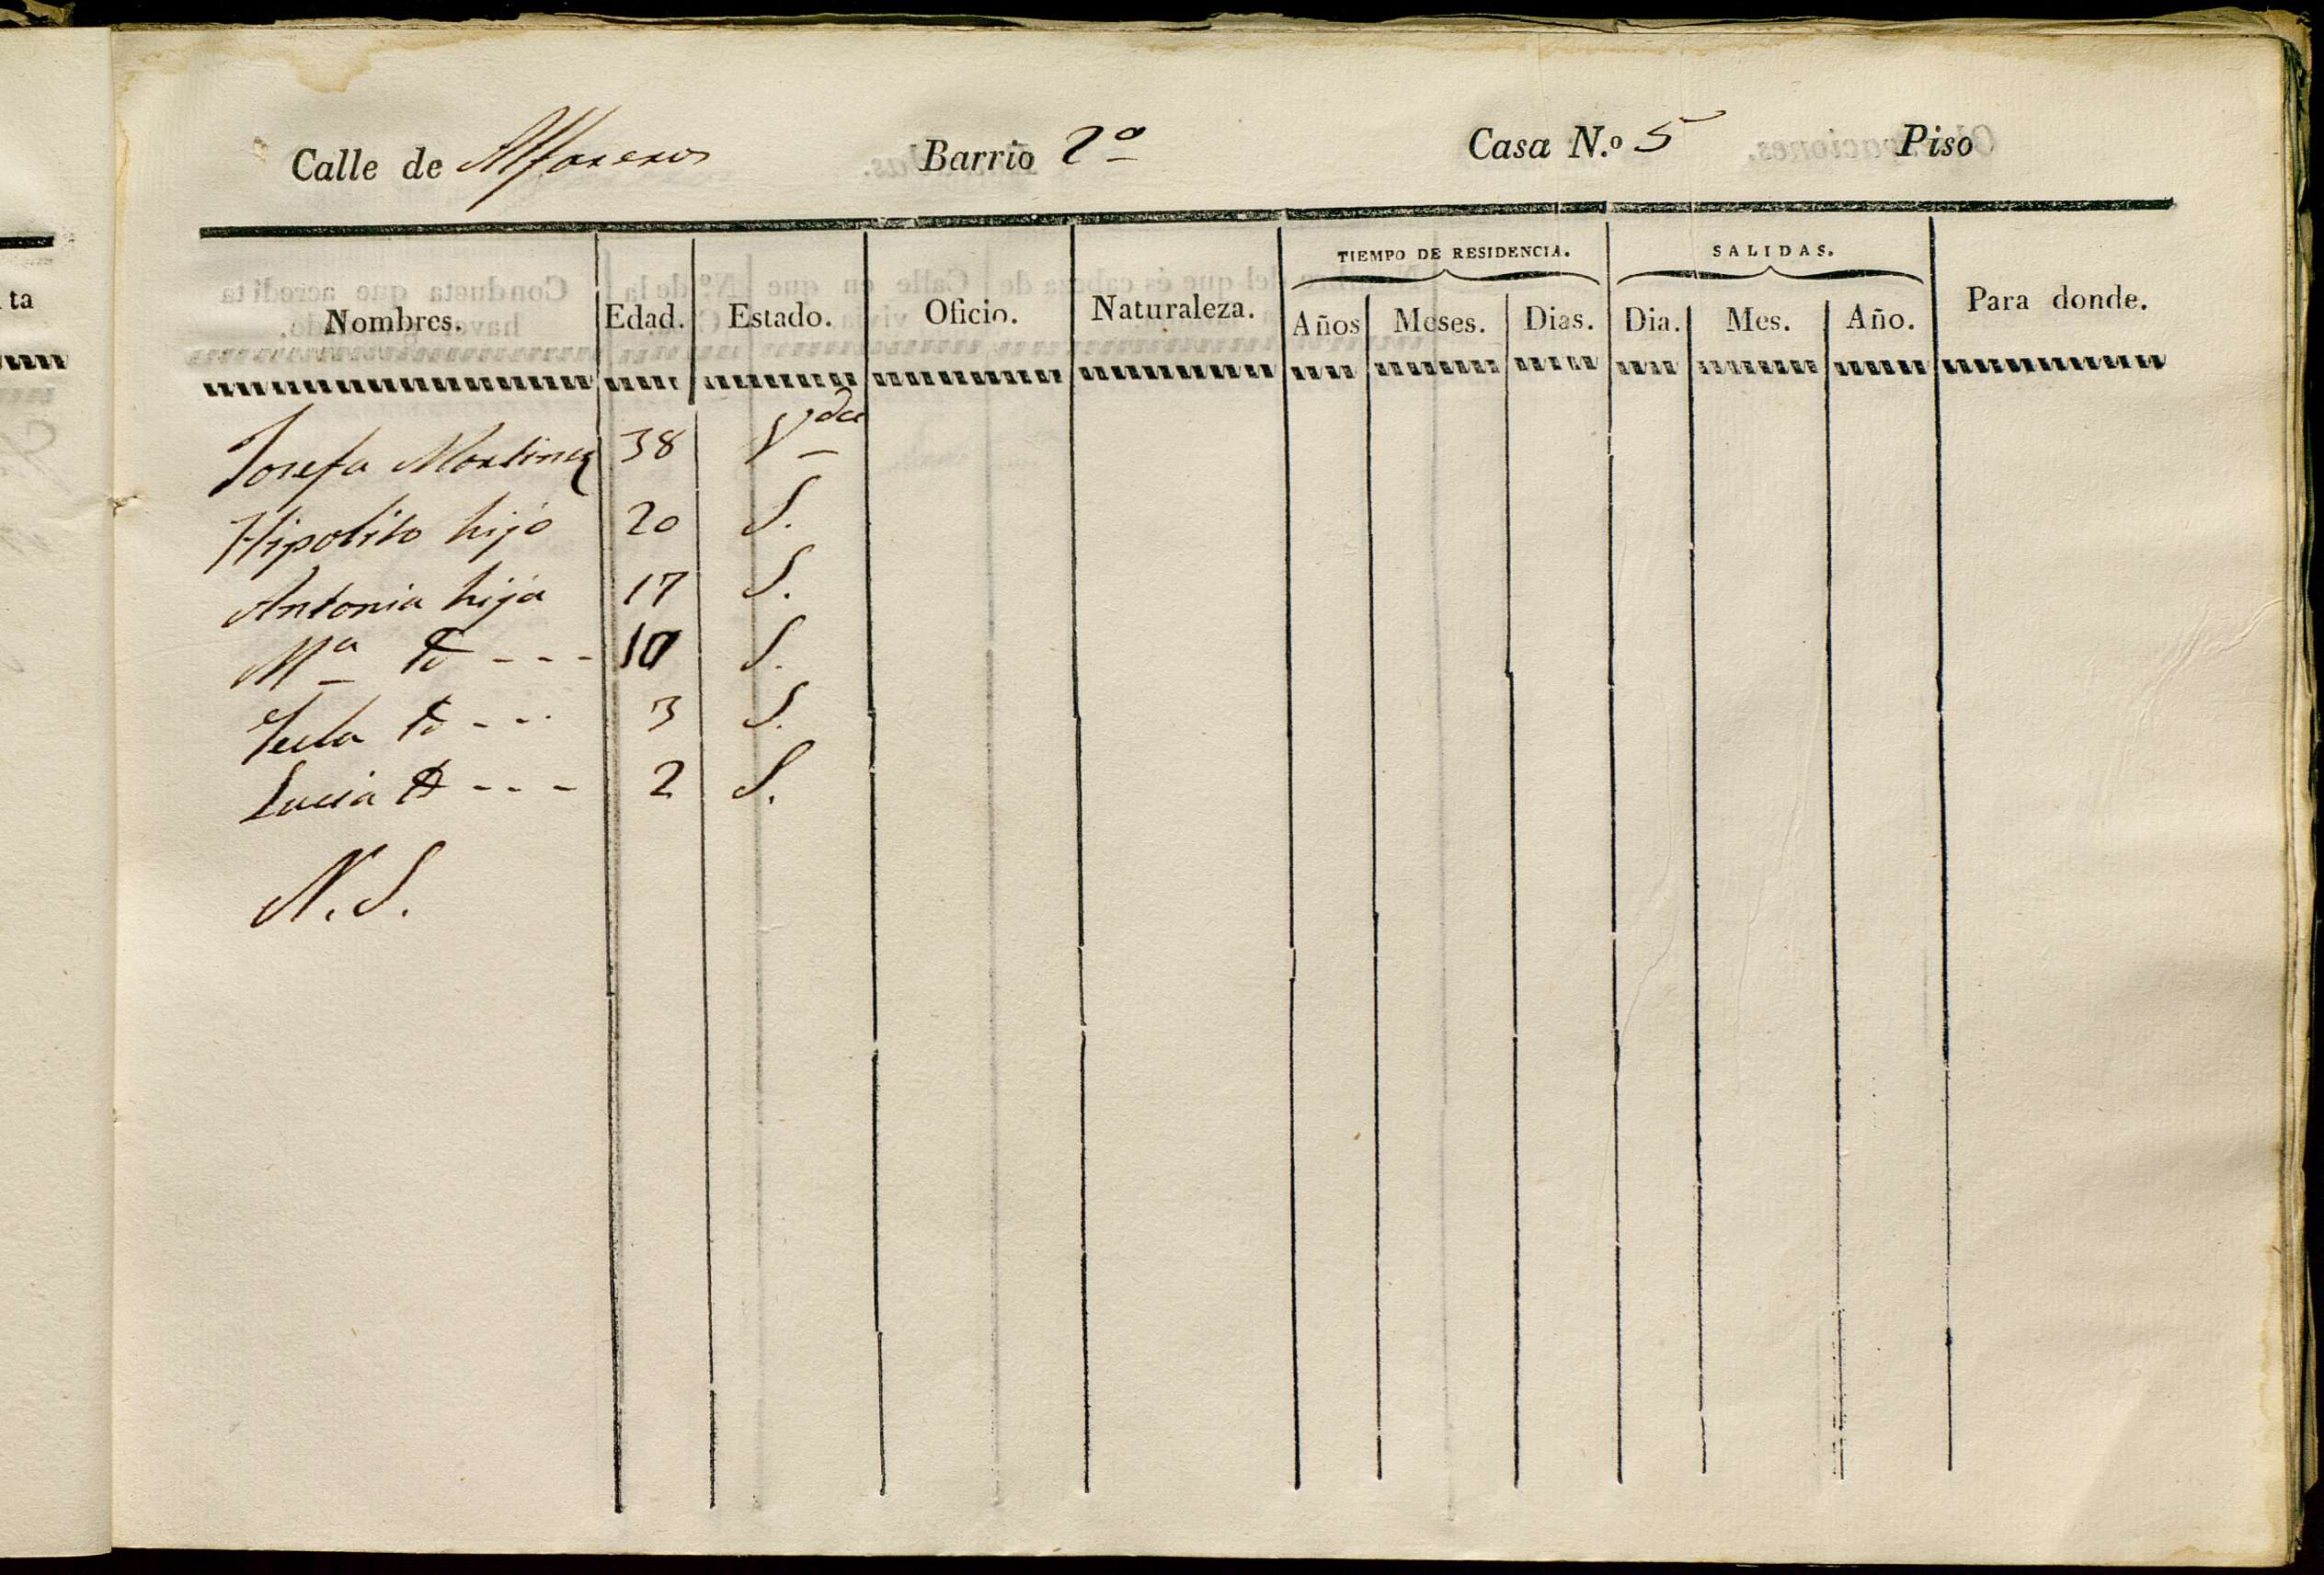 Calle de Alfareros Barrio 2º Casa N.º 5 Piso
TIEMPO DE RESIDENCIA. SALIDAS.
Nombres. Edad. Estado. Oficio. Naturaleza. Años Meses. Dias. Dia. Mes. Año. Para donde.
Josefa Martinez 38 Vda
Hipolito hijo 20 S.
Antonia hija 17 S.
Mª id - - - 10 S.
Tecla id - - - 3 S.
Lucia id - - - 2 S.
N. S.
ta